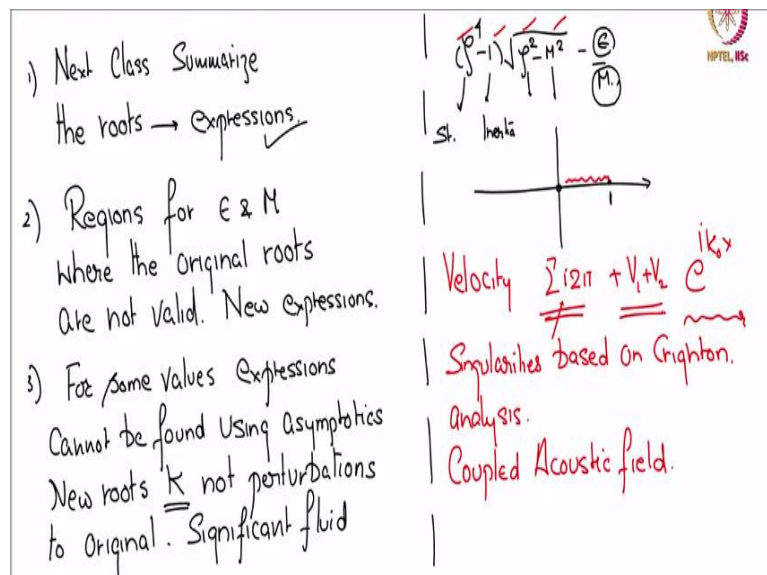 1) Next Class Summarize
the roots → expressions.
2) Regions for ϵ & M
where the original roots
are not valid. New expressions.
3) For some values expressions
Cannot be found using asymptotics
New roots K not perturbations
to original. Significant fluid
(ρ⁴-1)√ρ²-M² - ϵ/M.
St. Inertia
1
Velocity Σi2π + V₁+V₂ e^{ik₀x}
Singularities based on Crighton.
analysis.
Coupled Acoustic field.
NPTEL, IISc